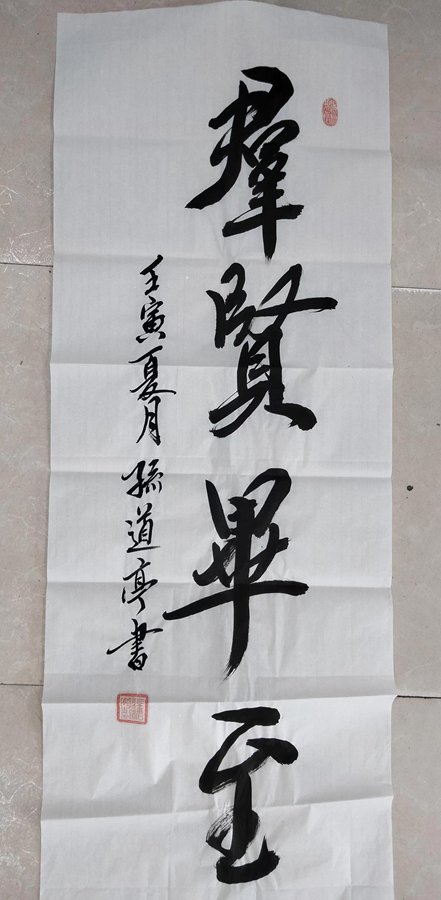 羣賢畢至
壬寅夏月孫道亭書